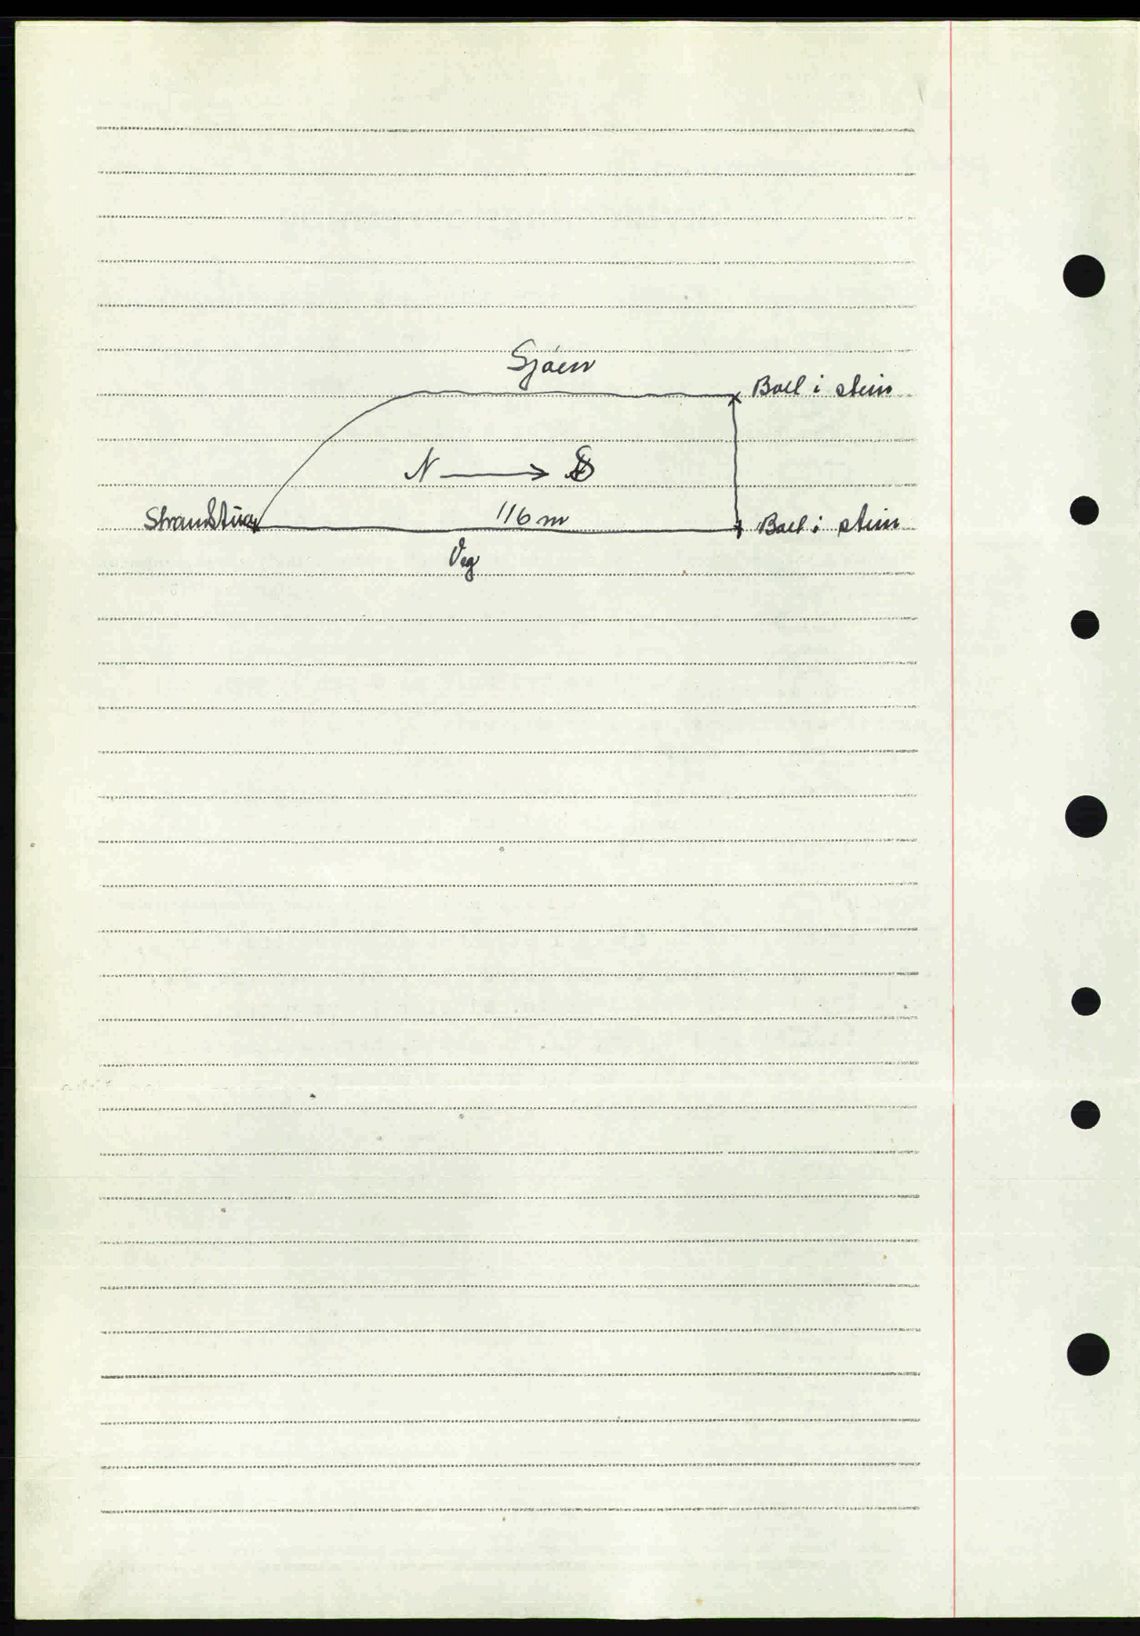 Sjøen
Bolt i stein
N → S
116 m
Bolt i stein
Veg